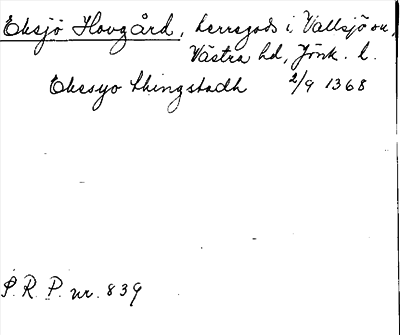 Eksjö Hovgård, herrgods i Vallsjö sn,
Västra hd, Jönk. l.
Ekesyo thingstadh 2/9 1368
S. R. P. nr. 839